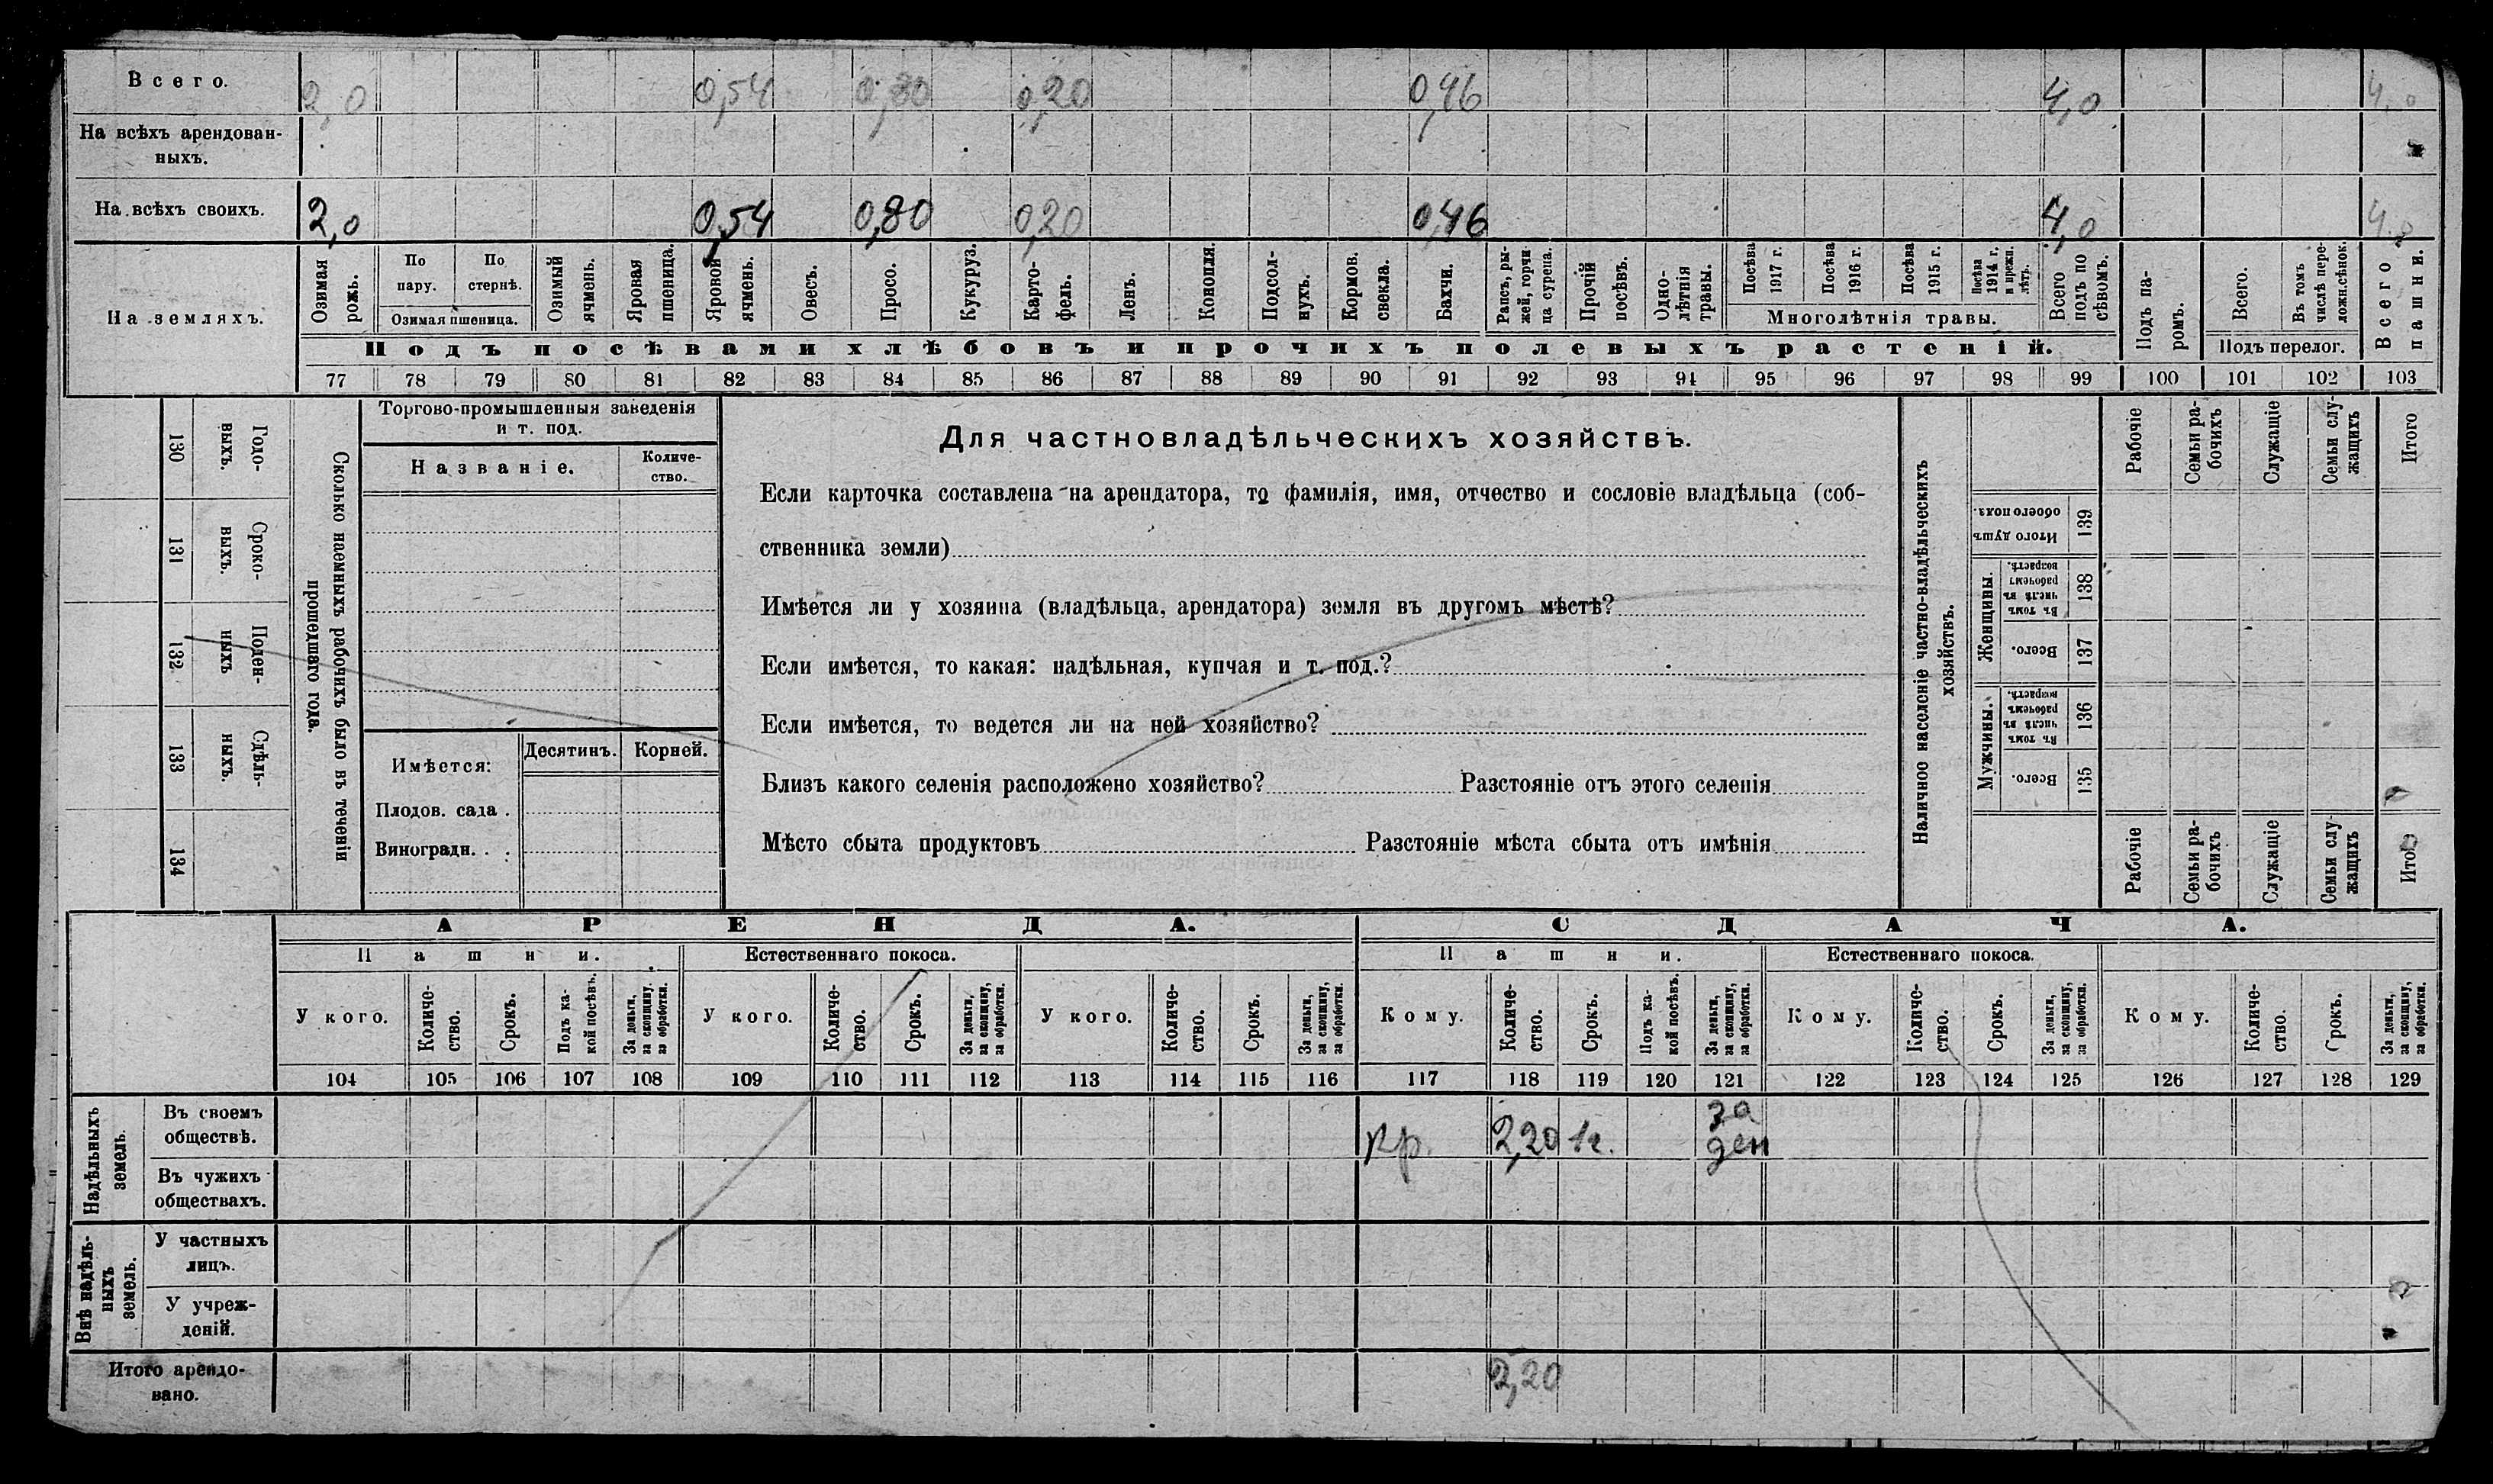 Всего. 2,0 0,54 0,80 0,20 0,46 4,0 4,0
На всѣхъ арендован-
ныхъ.
На всѣхъ своихъ. 2,0 0,54 0,80 0,20 0,46 4,0 4,0
На земляхъ.
Озимая рожь.
По пару.
По стернѣ.
Озимая пшеница.
Озимый ячмень.
Яровая пшеница.
Яровой ячмень.
Овесъ.
Просо.
Кукуруз.
Карто-
фель.
Ленъ.
Конопля.
Подсол-
нухъ.
Кормов. свекла.
Бахчи.
Рапсъ, ры-
жей, горчи
ца сурепа.
Прочій посѣвъ.
Одно-
лѣтнія травы.
Посѣва 1917 г.
Посѣва 1916 г.
Посѣва 1915 г.
Посѣва 1914 г. и прежн. лѣтъ.
Многолѣтнія травы.
Всего подъ по
сѣвомъ.
Подъ па-
ромъ.
Всего.
Въ томъ числѣ пере-
ложн.сѣнок.
Подъ перелог.
Всего пашни.
Подъ посѣвами хлѣбовъ и прочихъ полевыхъ растеній.
77 78 79 80 81 82 83 84 85 86 87 88 89 90 91 92 93 94 95 96 97 98 99 100 101 102 103
130 Годо-
выхъ.
131 Сроко-
выхъ.
132 Поден-
ныхъ
133 Сдѣль-
ныхъ.
134
Сколько наемныхъ рабочихъ было въ теченіи
прошедшаго года.
Торгово-промышленныя заведенія
и т. под.
Названіе.
Количе-
ство.
Имѣется:
Десятинъ. Корней.
Плодов. сада .
Виноградн. . .
Для частновладѣльческихъ хозяйствъ.
Если карточка составлена на арендатора, то фамилія, имя, отчество и сословіе владѣльца (соб-
ственника земли)
Имѣется ли у хозяина (владѣльца, арендатора) земля въ другомъ мѣстѣ?
Если имѣется, то какая: надѣльная, купчая и т. под.?
Если имѣется, то ведется ли на ней хозяйство?
Близъ какого селенія расположено хозяйство? Разстояніе отъ этого селенія
Мѣсто сбыта продуктовъ Разстояніе мѣста сбыта отъ имѣнія
Наличное населеніе частно-владѣльческихъ
хозяйствъ.
Рабочіе
Семьи ра-
бочихъ
Служащіе
Семьи слу-
жащихъ
Итого
Итого душъ обоего пола. 139
Женщины.
Въ томъ числѣ въ рабочемъ возрастѣ. 138
Всего. 137
Мужчины.
Въ томъ числѣ въ рабочемъ возрастѣ. 136
Всего. 135
Рабочіе
Семьи ра-
бочихъ
Служащіе
Семьи слу-
жащихъ
Итого
АРЕНДА. СДАЧА.
Пашни. Естественнаго покоса. Пашни. Естественнаго покоса.
У кого.
Количе-
ство.
Срокъ.
Подъ ка-
кой посѣвъ.
За деньги, за скопщину, за обработки.
У кого.
Количе-
ство.
Срокъ.
За деньги, за скопщину, за обработки.
У кого.
Количе-
ство.
Срокъ.
За деньги, за скопщину, за обработки.
Кому.
Количе-
ство.
Срокъ.
Подъ ка-
кой посѣвъ.
За деньги, за скопщину, за обработки.
Кому.
Количе-
ство.
Срокъ.
За деньги, за скопщину, за обработки.
Кому.
Количе-
ство.
Срокъ.
За деньги, за скопщину, за обработки.
104 105 106 107 108 109 110 111 112 113 114 115 116 117 118 119 120 121 122 123 124 125 126 127 128 129
Надѣльныхъ
земель.
Въ своемъ
обществѣ. кр. 2,20 1г. за
ден
Въ чужихъ
обществахъ.
Внѣ надѣль-
ныхъ
земель.
У частныхъ
лицъ.
У учреж-
деній.
Итого арендо-
вано. 2,20